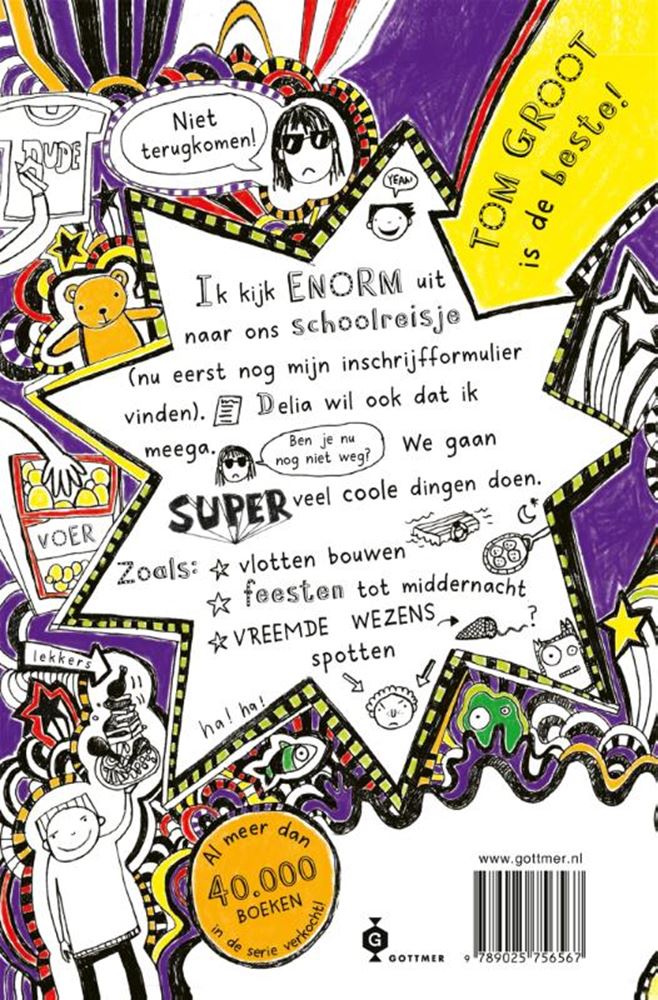 DUDE
Niet
terugkomen!
YEAH
TOM GROOT
is de beste!
Ik kijk ENORM uit
naar ons schoolreisje
(nu eerst nog mijn inschrijfformulier
vinden). Delia wil ook dat ik
meega. Ben je nu
nog niet weg? We gaan
SUPER veel coole dingen doen.
Zoals: vlotten bouwen
feesten tot middernacht
VREEMDE WEZENS ?
spotten
VOER
lekkers
ha! ha!
Al meer dan
40.000
BOEKEN
in de serie verkocht!
www.gottmer.nl
G GOTTMER
9 789025 756567